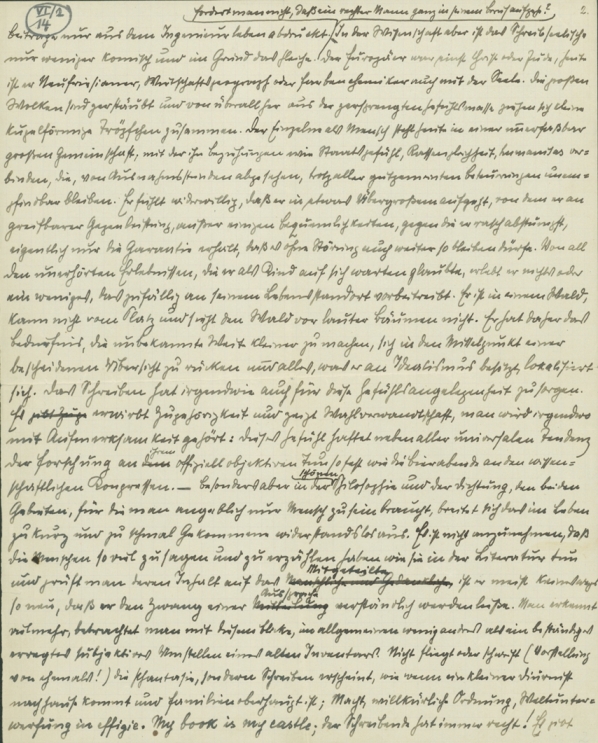 VI/2
14
2.
fordert man nicht, daß ein rechter Mann ganz in seinem Beruf aufgeht?
Beiträge nur aus dem Ingenieurleben abdruckt. In der Wissenschaft aber ist das Schreibselische
nur weniger komisch und im Grund das gleiche. Der Europäer war einst Christ oder Jude, heute
ist er Neufriesianer, Wirtschaftsgeograph oder Farbenchemiker auch mit der Seele. Die großen
Wolken sind zerstäubt und von überall her aus der zersprengten Gefühlsmasse ziehen sich kleine
kugelförmige Tröpfchen zusammen. Der Einzelne als Mensch steht heute in einer unerfaßbar
großen Gemeinschaft, mit der ihn Beziehungen wie Staatsgefühl, Rassengleichheit, humanitas ver-
binden, die, von Ausnahmsstunden abgesehen, trotz aller gutgemeinten Beteuerungen unem-
pfindbar bleiben. Er fühlt widerwillig, daß er in etwas Übergroßem aufgeht, von dem er an
greifbarer Gegenleistung, außer einigen Bequemlichkeiten, gegen die er rasch abstumpft,
eigentlich nur die Garantie erhält, daß es ohne Störung auch weiter so bleiben dürfe. Von all
den unerhörten Erlebnissen, die er als Kind auf sich warten glaubte, erlebt er nichts oder
ein weniges, das zufällig an seinem Lebensstandort vorbeitreibt. Er ist in einem Wald,
kann nicht vom Platz und sieht den Wald vor lauter Bäumen nicht. Er hat daher das
Bedürfnis, die unbekannte Welt kleiner zu machen, sich in den Mittelpunkt einer
bescheidenen Übersicht zu rücken und alles, was er an Idealismus besitzt, lokalisiert
sich. Das Schreiben hat irgendwie auch für diese Gefühlsangelegenheit zu sorgen.
Es erwirbt Zugehörigkeit und zeigt Wahlverwandtschaft, man wird irgendwo
mit Aufmerksamkeit gehört: dieses Gefühl haftet neben aller universalen Tendenz
der Forschung an ihrem offiziell objektiven Tun so fest wie die Bierabende an den wissen-
schaftlichen Kongressen. — Besonders aber in der schönen Philosophie und der Dichtung, den beiden
Gebieten, für die man angeblich nur Mensch zu sein braucht, breitet sich das im Leben
zu kurz und zu schmal Gekommene widerstandslos aus. Es ist nicht anzunehmen, daß
die Menschen so viel zu sagen und zu erzählen haben wie sie in der Literatur tun
und prüft man deren Inhalt auf das Mitgeteilte, ist er meist keineswegs
so neu, daß er den Zwang einer Aussprache verständlich werden ließe. Man erkennt
vielmehr, betrachtet man mit diesem Blick, im allgemeinen wenig anders als ein beständiges
erregtes subjektives Umstellen eines alten Inventars. Nicht fliegt oder schweift (Vorstellung
von ehmals!) die Phantasie, sondern Schreiben erscheint, wie wenn ein kleiner Diurnist
nachhause kommt und Familienoberhaupt ist; Macht, willkürliche Ordnung, Weltunter-
werfung in effigie. My book is my castle; der Schreibende hat immer recht! Es gibt